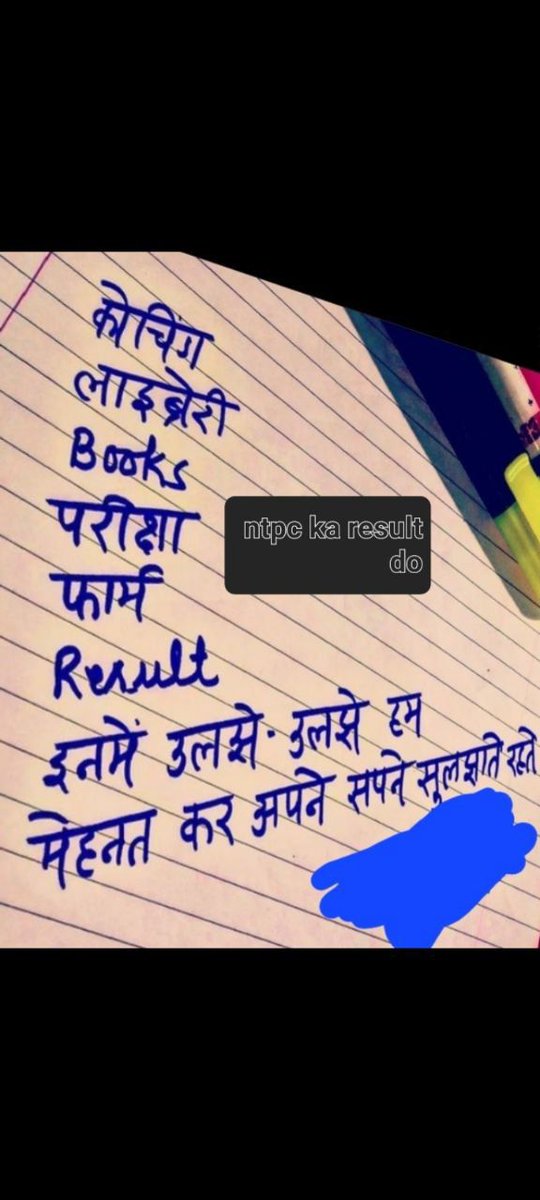 कोचिंग
लाइब्रेरी
Books
परीक्षा
ntpc ka result
do
फार्म
Result
इनमें उलझे-उलझे हम
मेहनत कर अपने सपने सूलझाते रहते